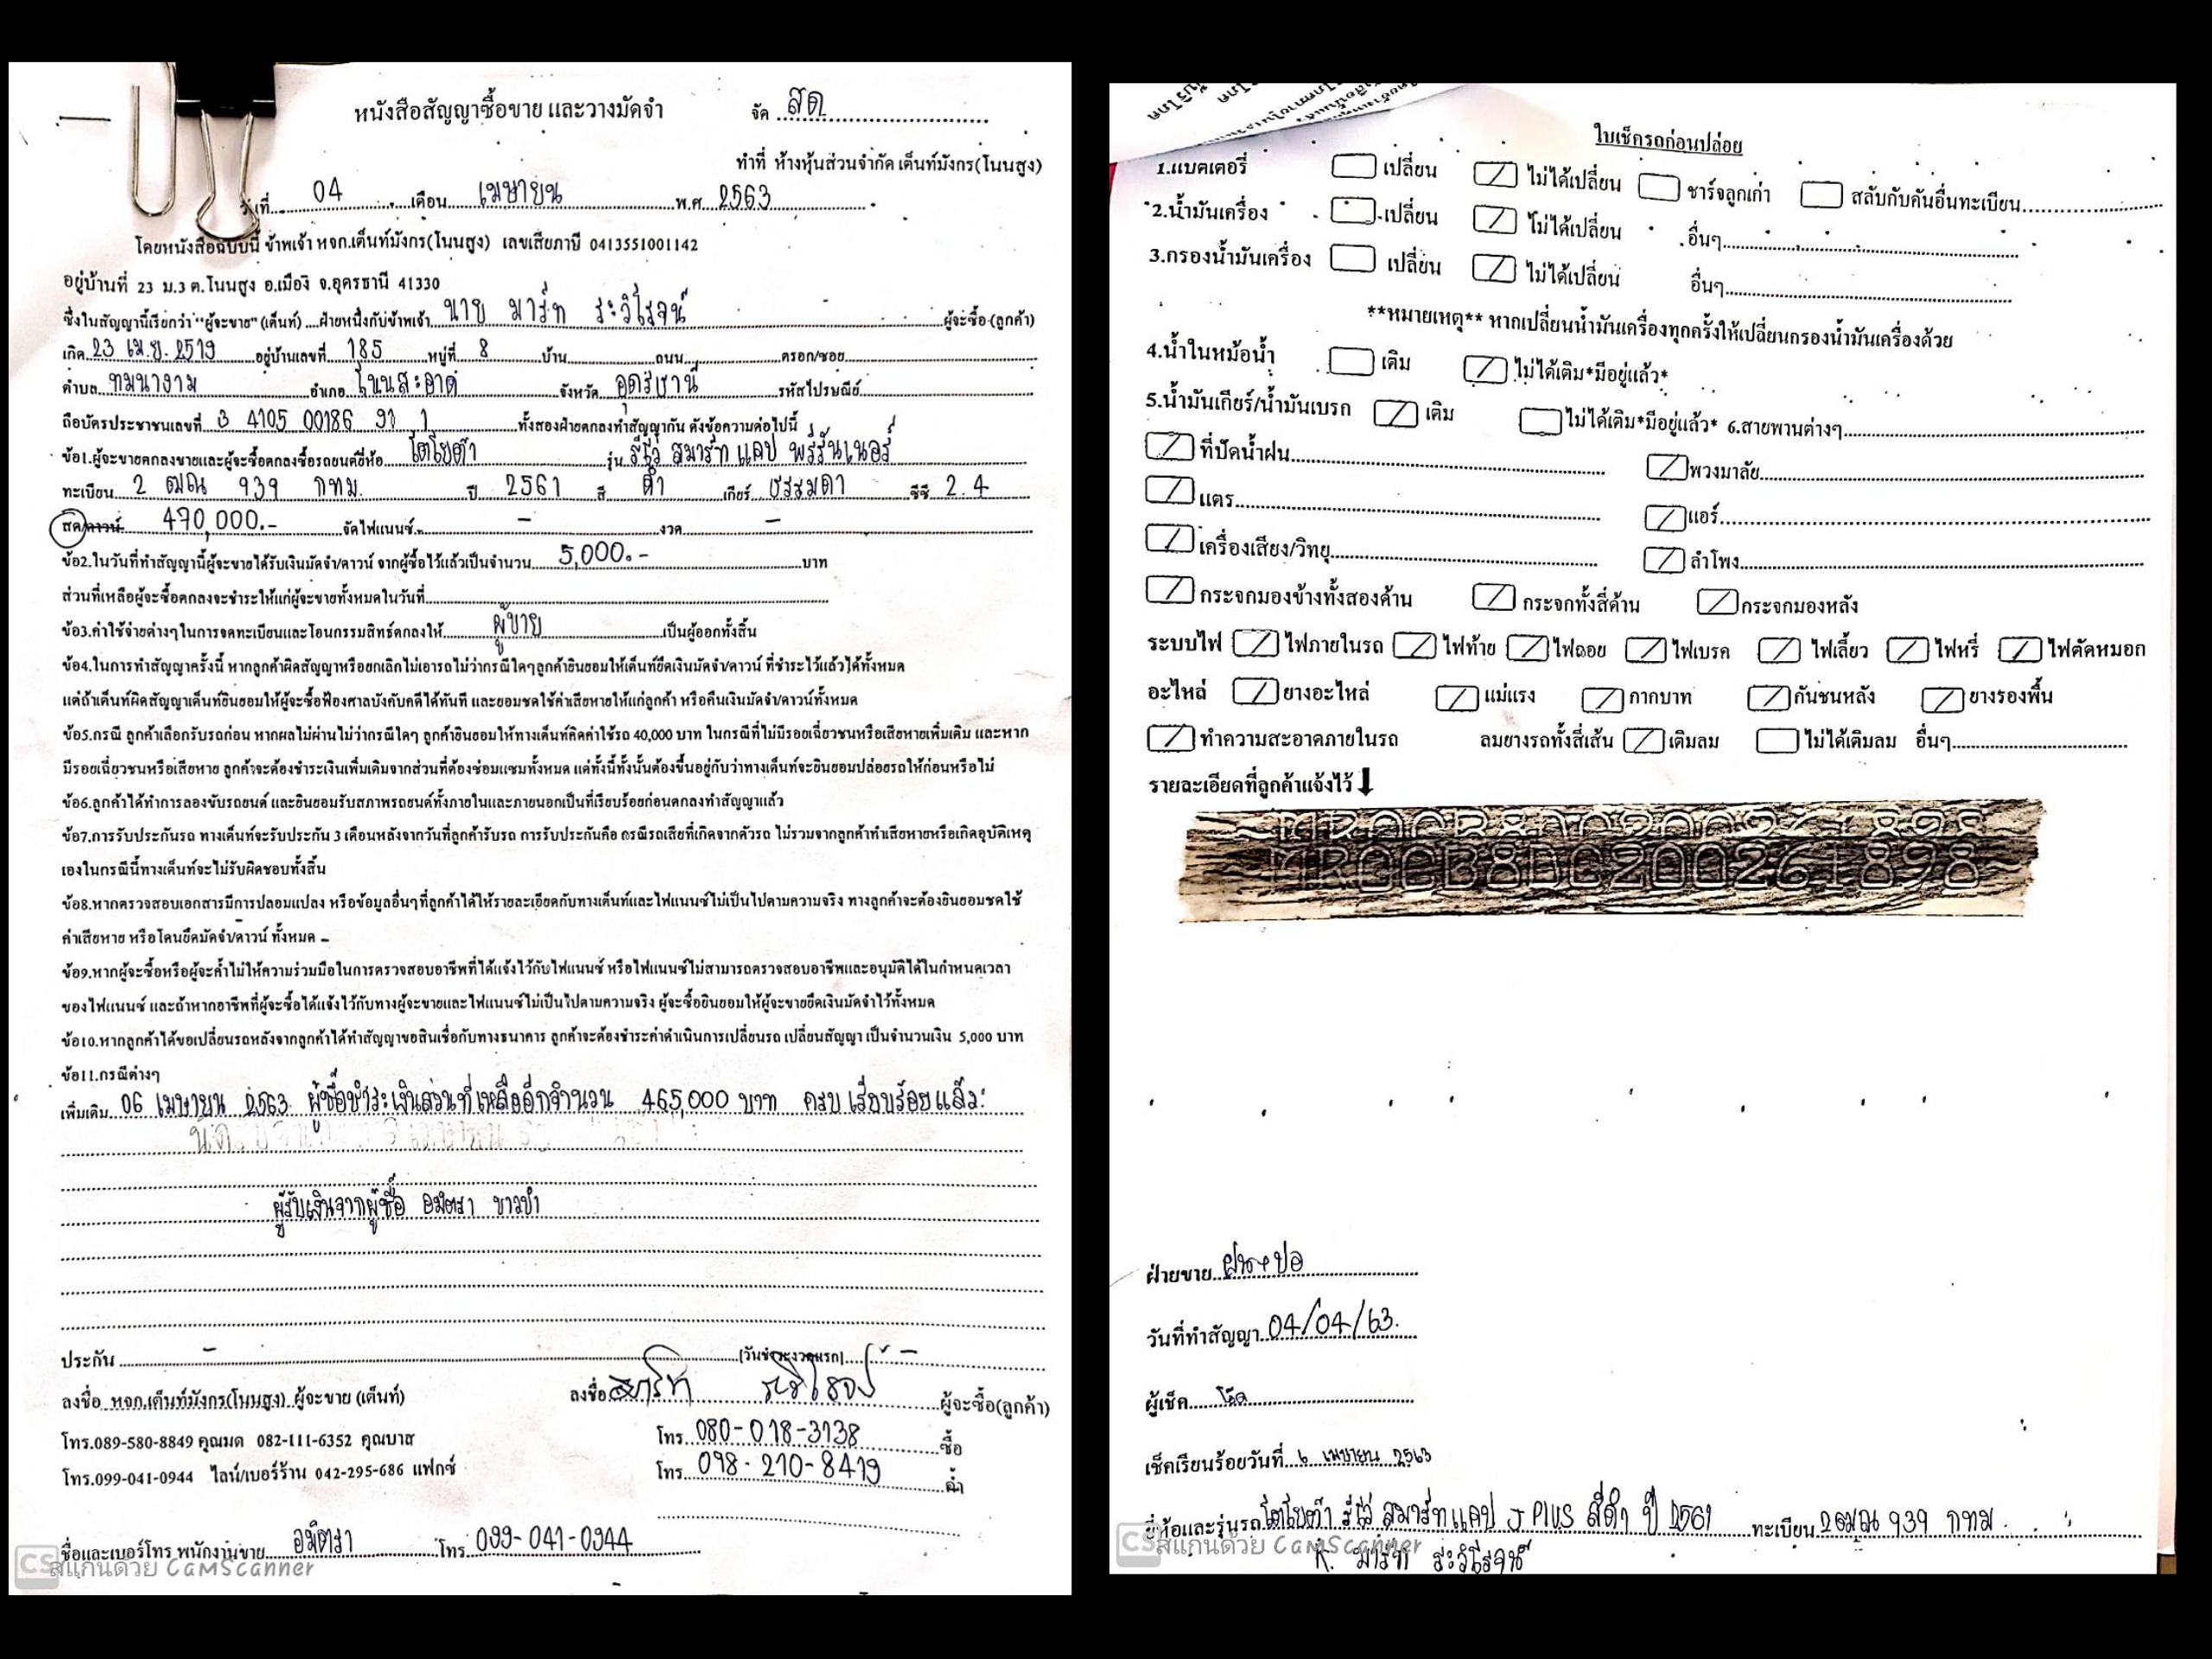 หนังสือสัญญาซื้อขาย และวางมัดจำ
จัด สด
ทำที่ ห้างหุ้นส่วนจำกัด เต็นท์มังกร(โนนสูง)
วันที่ 04 เดือน เมษายน พ.ศ. 2563
โดยหนังสือฉบับนี้ ข้าพเจ้า หจก.เต็นท์มังกร(โนนสูง) เลขเสียภาษี 0413551001142
อยู่บ้านที่ 23 ม.3 ต.โนนสูง อ.เมือง จ.อุดรธานี 41330
ซึ่งในสัญญานี้เรียกว่า "ผู้จะขาย" (เต็นท์) ....ฝ่ายหนึ่งกับข้าพเจ้า นาย มาร์ท ระวิโรจน์ ผู้จะซื้อ (ลูกค้า)
เกิด 23 เม.ย. 2519 อยู่บ้านเลขที่ 185 หมู่ที่ 8 บ้าน ถนน ตรอก/ซอย
ตำบล ทมนางาม อำเภอ โนนสะอาด จังหวัด อุดรธานี รหัสไปรษณีย์
ถือบัตรประชาชนเลขที่ 3 4105 00186 91 1 ทั้งสองฝ่ายตกลงทำสัญญากัน ดังข้อความต่อไปนี้
ข้อ1.ผู้จะขายตกลงขายและผู้จะซื้อตกลงซื้อรถยนต์ยี่ห้อ โตโยต้า รุ่น รีโว่ สมาร์ท แคป พรีรันเนอร์
ทะเบียน 2 ฒณ 939 กทม. ปี 2561 สี ดำ เกียร์ ธรรมดา ซีซี 2.4
สด/ดาวน์ 470,000.- จัดไฟแนนซ์ - งวด -
ข้อ2.ในวันที่ทำสัญญานี้ผู้จะขายได้รับเงินมัดจำ/ดาวน์ จากผู้ซื้อไว้แล้วเป็นจำนวน 5,000.- บาท
ส่วนที่เหลือผู้จะซื้อตกลงจะชำระให้แก่ผู้จะขายทั้งหมดในวันที่
ข้อ3.ค่าใช้จ่ายต่างๆในการจดทะเบียนและโอนกรรมสิทธ์ตกลงให้ ผู้ขาย เป็นผู้ออกทั้งสิ้น
ข้อ4.ในการทำสัญญาครั้งนี้ หากลูกค้าผิดสัญญาหรือยกเลิกไม่เอารถไม่ว่ากรณีใดๆลูกค้ายินยอมให้เต็นท์ยึดเงินมัดจำ/ดาวน์ ที่ชำระไว้แล้วได้ทั้งหมด
แต่ถ้าเต็นท์ผิดสัญญาเต็นท์ยินยอมให้ผู้จะซื้อฟ้องศาลบังคับคดีได้ทันที และยอมชดใช้ค่าเสียหายให้แก่ลูกค้า หรือคืนเงินมัดจำ/ดาวน์ทั้งหมด
ข้อ5.กรณี ลูกค้าเลือกรับรถก่อน หากผลไม่ผ่านไม่ว่ากรณีใดๆ ลูกค้ายินยอมให้ทางเต็นท์คิดค่าใช้รถ 40,000 บาท ในกรณีที่ไม่มีรอยเฉี่ยวชนหรือเสียหายเพิ่มเติม และหาก
มีรอยเฉี่ยวชนหรือเสียหาย ลูกค้าจะต้องชำระเงินเพิ่มเติมจากส่วนที่ต้องซ่อมแซมทั้งหมด แต่ทั้งนี้ทั้งนั้นต้องขึ้นอยู่กับว่าทางเต็นท์จะยินยอมปล่อยรถให้ก่อนหรือไม่
ข้อ6.ลูกค้าได้ทำการลองขับรถยนต์ และยินยอมรับสภาพรถยนต์ทั้งภายในและภายนอกเป็นที่เรียบร้อยก่อนตกลงทำสัญญาแล้ว
ข้อ7.การรับประกันรถ ทางเต็นท์จะรับประกัน 3 เดือนหลังจากวันที่ลูกค้ารับรถ การรับประกันคือ กรณีรถเสียที่เกิดจากตัวรถ ไม่รวมจากลูกค้าทำเสียหายหรือเกิดอุบัติเหตุ
เองในกรณีนี้ทางเต็นท์จะไม่รับผิดชอบทั้งสิ้น
ข้อ8.หากตรวจสอบเอกสารมีการปลอมแปลง หรือข้อมูลอื่นๆที่ลูกค้าได้ให้รายละเอียดกับทางเต็นท์และไฟแนนซ์ไม่เป็นไปตามความจริง ทางลูกค้าจะต้องยินยอมชดใช้
ค่าเสียหาย หรือโดนยึดมัดจำ/ดาวน์ ทั้งหมด
ข้อ9.หากผู้จะซื้อหรือผู้จะค้ำไม่ให้ความร่วมมือในการตรวจสอบอาชีพที่ได้แจ้งไว้กับไฟแนนซ์ หรือไฟแนนซ์ไม่สามารถตรวจสอบอาชีพและอนุมัติได้ในกำหนดเวลา
ของไฟแนนซ์ และถ้าหากอาชีพที่ผู้จะซื้อได้แจ้งไว้กับทางผู้จะขายและไฟแนนซ์ไม่เป็นไปตามความจริง ผู้จะซื้อยินยอมให้ผู้จะขายยึดเงินมัดจำไว้ทั้งหมด
ข้อ10.หากลูกค้าได้ขอเปลี่ยนรถหลังจากลูกค้าได้ทำสัญญาขอสินเชื่อกับทางธนาคาร ลูกค้าจะต้องชำระค่าดำเนินการเปลี่ยนรถ เปลี่ยนสัญญา เป็นจำนวนเงิน 5,000 บาท
ข้อ11.กรณีต่างๆ
เพิ่มเติม 06 เมษายน 2563 ผู้ซื้อชำระเงินส่วนที่เหลืออีกจำนวน 465,000 บาท ครบเรียบร้อยแล้ว
ผู้รับเงินจากผู้ซื้อ อมิตรา ขาวขำ
ประกัน - (วันชำระงวดแรก) -
ลงชื่อ หจก.เต็นท์มังกร(โนนสูง) ผู้จะขาย (เต็นท์) ลงชื่อ มาร์ท ระวิโรจน์ ผู้จะซื้อ(ลูกค้า)
โทร.089-580-8849 คุณมด 082-111-6352 คุณบาส โทร 080-018-3138 ซื้อ
โทร.099-041-0944 ไลน์/เบอร์ร้าน 042-295-686 แฟกซ์ โทร 098-210-8419 ค้ำ
ชื่อและเบอร์โทร พนักงานขาย อมิตรา โทร 099-041-0944
CS สแกนด้วย CamScanner
ใบเช็ครถก่อนปล่อย
1.แบตเตอรี่ เปลี่ยน ไม่ได้เปลี่ยน ชาร์จลูกเก่า สลับกับคันอื่นทะเบียน
2.น้ำมันเครื่อง เปลี่ยน ไม่ได้เปลี่ยน อื่นๆ
3.กรองน้ำมันเครื่อง เปลี่ยน ไม่ได้เปลี่ยน อื่นๆ
**หมายเหตุ** หากเปลี่ยนน้ำมันเครื่องทุกครั้งให้เปลี่ยนกรองน้ำมันเครื่องด้วย
4.น้ำในหม้อน้ำ เติม ไม่ได้เติม*มีอยู่แล้ว*
5.น้ำมันเกียร์/น้ำมันเบรก เติม ไม่ได้เติม*มีอยู่แล้ว* 6.สายพานต่างๆ
ที่ปัดน้ำฝน พวงมาลัย
แตร แอร์
เครื่องเสียง/วิทยุ ลำโพง
กระจกมองข้างทั้งสองด้าน กระจกทั้งสี่ด้าน กระจกมองหลัง
ระบบไฟ ไฟภายในรถ ไฟท้าย ไฟถอย ไฟเบรค ไฟเลี้ยว ไฟหรี่ ไฟตัดหมอก
อะไหล่ ยางอะไหล่ แม่แรง กากบาท กันชนหลัง ยางรองพื้น
ทำความสะอาดภายในรถ ลมยางรถทั้งสี่เส้น เติมลม ไม่ได้เติมลม อื่นๆ
รายละเอียดที่ลูกค้าแจ้งไว้
MR0CB8DC200261898
MR0CB8DC200261898
ฝ่ายขาย
วันที่ทำสัญญา 04/04/63.
ผู้เช็ค
เช็คเรียบร้อยวันที่ 6 เมษายน 2563
ยี่ห้อและรุ่นรถ โตโยต้า รีโว่ สมาร์ทแคป J PLUS สีดำ ปี 2561 ทะเบียน 2ฒณ 939 กทม.
K. มาร์ท ระวิโรจน์
CS สแกนด้วย CamScanner